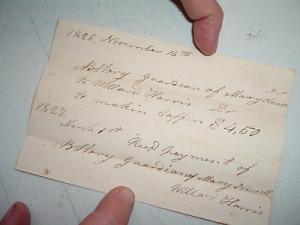 1826, November 16th
A Story Guardian of Mary
to Willard Harris Dr
to makin Coffin $4,50
1827
March 1st Recd payment of
A Story Guardian of Mary
Willard Harris